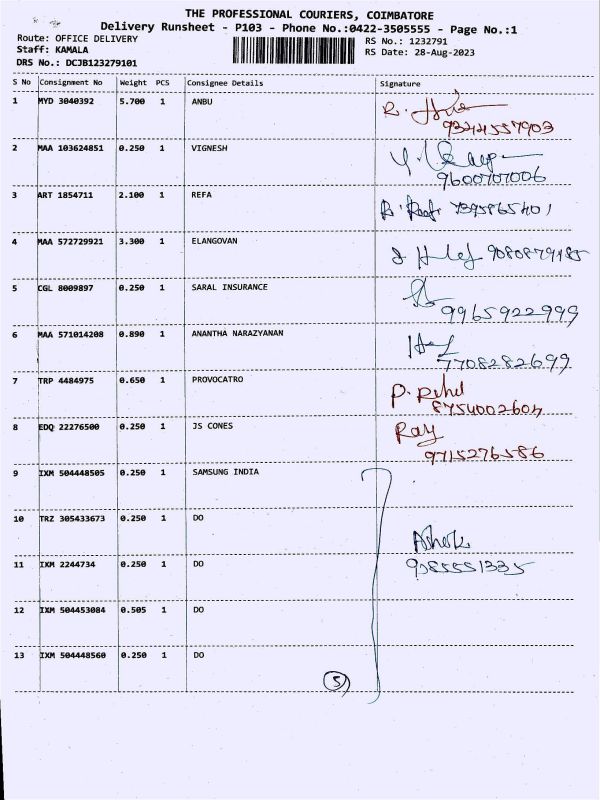 THE PROFESSIONAL COURIERS, COIMBATORE
Delivery Runsheet - P103 - Phone No.:0422-3505555 - Page No.:1
Route: OFFICE DELIVERY RS No.: 1232791
Staff: KAMALA RS Date: 28-Aug-2023
DRS No.: DCJB123279101
S No Consignment No Weight PCS Consignee Details Signature
1 MYD 3040392 5.700 1 ANBU
9344557903
2 MAA 103624851 0.250 1 VIGNESH
9600707006
3 ART 1854711 2.100 1 REFA
4 MAA 572729921 3.300 1 ELANGOVAN 9080879185
5 CGL 8009897 0.250 1 SARAL INSURANCE
9965922999
6 MAA 571014208 0.890 1 ANANTHA NARAZYANAN
7708282699
7 TRP 4484975 0.650 1 PROVOCATRO
8754002604
8 EDQ 22276500 0.250 1 JS CONES Ray
9715276586
9 IXM 504448505 0.250 1 SAMSUNG INDIA
10 TRZ 305433673 0.250 1 DO
Ashok
11 IXM 2244734 0.250 1 DO
12 IXM 504453084 0.505 1 DO
13 IXM 504448560 0.250 1 DO
5